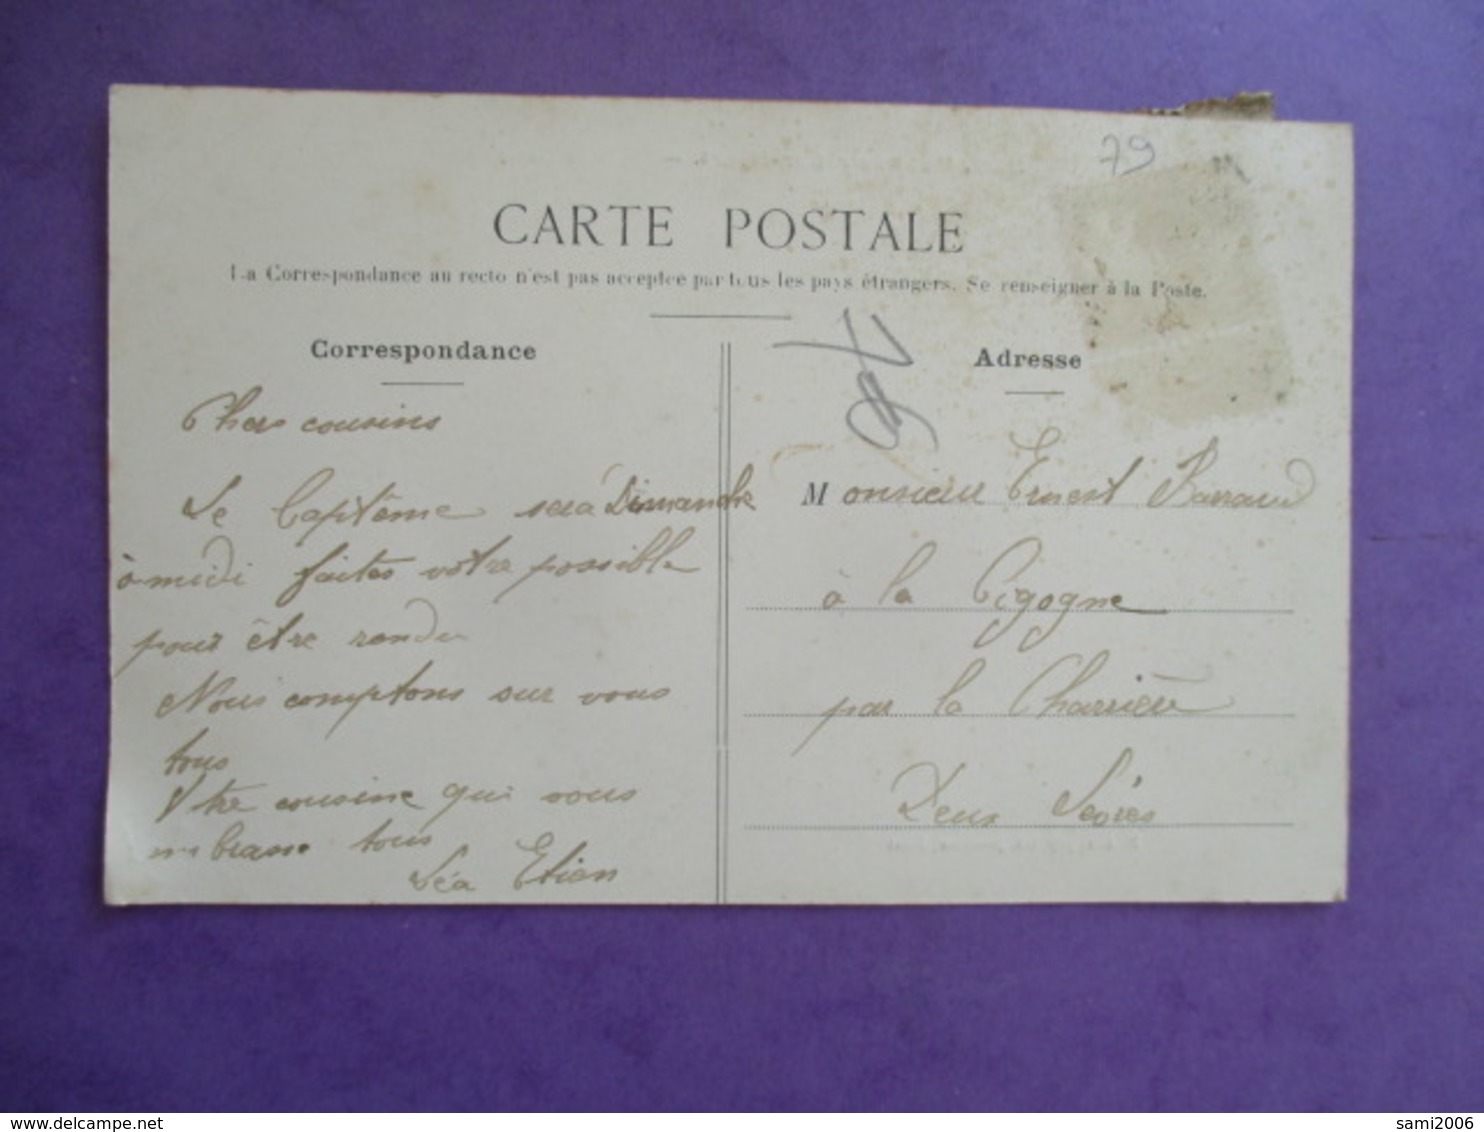 79
CARTE POSTALE
La Correspondance au recto n'est pas acceptée par tous les pays étrangers. Se renseigner à la Poste.
Correspondance
Chers cousins
Le Captême sera Dimanche
à midi faites votre possible
pour être rendu
Nous comptons sur vous
tous
Vtre cousine qui vous
embrasse tous
Léa Etien
Adresse
Monsieur Ernest Barraud
à la Cigogne
par la Charrière
Deux Sèvres
delcampe.net
sami2006